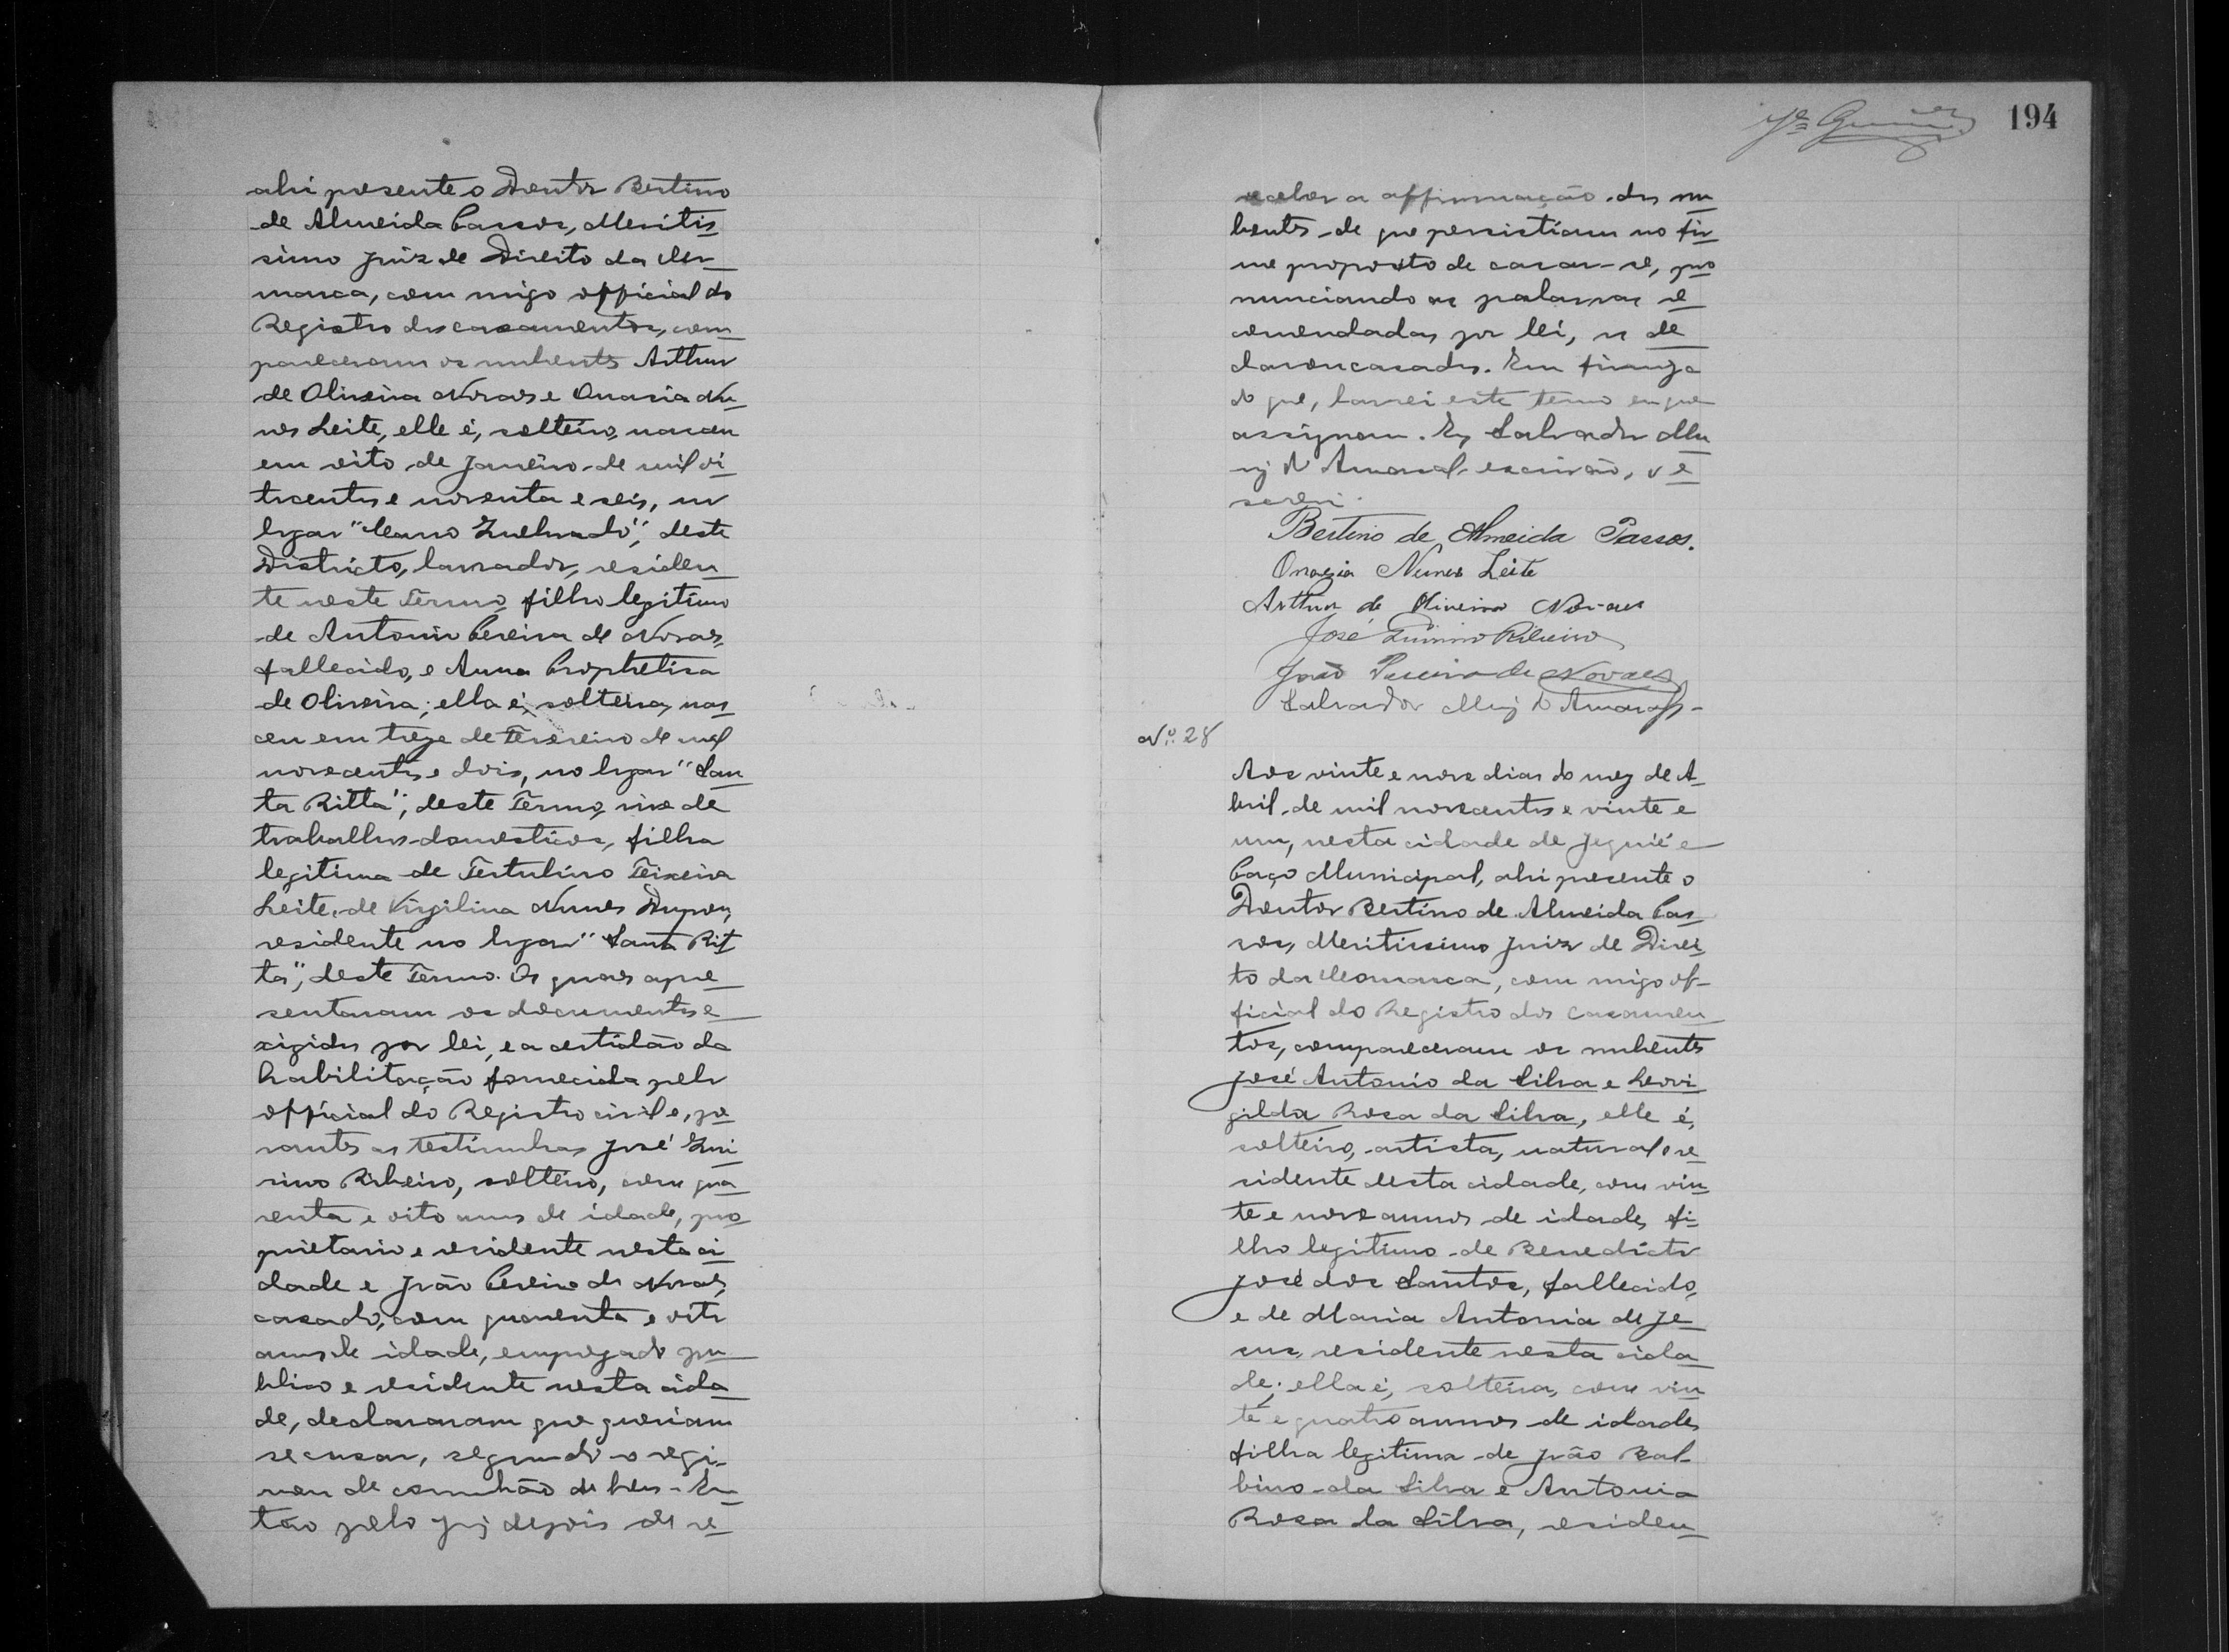 ahi presente o Doutor Bertino
de Almeida Passos, Meritis
simo Juiz de Direito da Co
marca, com migo official do
Registro dos casamentos, com
pareceram os nubentes Arthur
de Oliveira Novaes e Onasia Nu
nes Leite, elle é, solteiro, nasceu
em oito de Janeiro de mil oi
tocentos e noventa e seis, no
lugar "Morro Quebrado", deste
Districto, lavrador, residen
te neste Termo, filho legitimo
de Antonio Pereira de Novaes,
fallecido, e Anna Prophetisa
de Oliveira; ella é, solteira, nas
ceu em treze de Fevereiro de mil
novecentos e dois, no lugar "San
ta Ritta", deste Termo, vive de
trabalhos domesticos, filha
legitima de Tertulino Teixeira
Leite, de Virgilina Nunes
residente no lugar "Santa Rit
ta", deste Termo. Os quaes apre
sentaram os documentos e
xigidos por lei, e a certidão da
habilitação fornecida pelo
official do Registro civil e, pe
rantes as testimunhas José Qui
rino Ribeiro, solteiro, com qua
renta e oito annos de idade, pro
prietario e residente nesta ci
dade e João Pereira de Novaes,
casado, com quarenta e oito
annos de idade, empregado pu
blico e residente nesta cida
de, declararam que queriam
se casar, segundo o regi
men de comunhão de bens. En
tão pelo Juiz depois de re
194
ceber a affirmação dos nu
bentes de que persistiam no fir
me proposito de casar-se, pro
nunciando as palavras re
comendadas por lei, os de
clarou casados. Em firmeza
do que, lavrei este termo em que
assignam. Eu Salvador Mu
niz do Amaral, escrivão, o e
screvi.
Bertino de Almeida Passos.
Onasia Nunes Leite
Arthur de Oliveira Novaes
José Quirino Ribeiro
João Pereira de Novaes
Salvador Muniz do Amaral
Nº. 28
Aos vinte e nove dias do mez de A
bril de mil novecentos e vinte e
um, nesta cidade de Jequié e
Paço Municipal, ahi presente o
Doutor Bertino de Almeida Pas
sos, Meritissimo Juiz de Direi
to da Comarca, com migo of
ficial do Registro dos casamen
tos, compareceram os nubentes
José Antonio da Silva e Leovi
gilda Rosa da Silva, elle é,
solteiro, artista, natural e re
sidente desta cidade, com vin
te e nove annos de idade, fi
lho legitimo de Benedicto
José dos Santos, fallecido,
e de Maria Antonia de Je
sus, residente nesta cida
de; ella é, solteira, com vin
te e quatro annos de idade,
filha legitima de João Bal
bino da Silva e Antonia
Rosa da Silva, residen